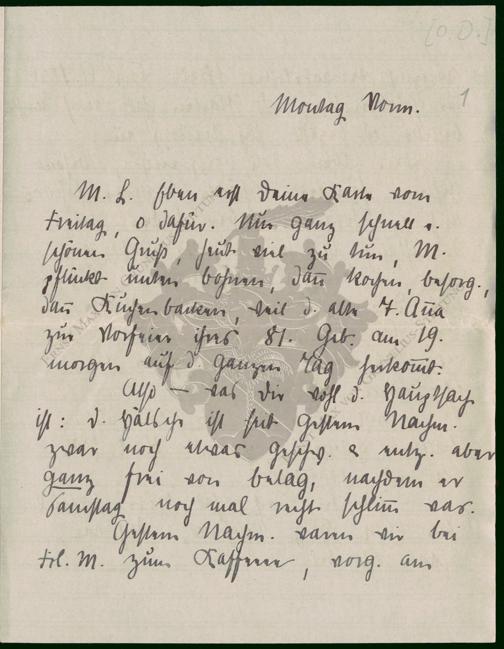 [o.D.]
1
Montag Vorm.
M. L. Eben erst Deine Karte vom
Freitag, o dafür. Nur ganz schnell e.
schönen Gruß, heut viel zu tun, M.
pflückt unten Bohnen, dann kochen, besorg.,
dann Kuchenbacken, weil d. alte T. Anna
zur Vorfeier ihres 81. Geb. am 19.
morgen auf d. ganzen Tag herkomt.
Also — was Dir wohl d. Hauptsach
ist: d. Hälsch ist seit gestern Nachm.
zwar noch etwas geschw. & entz. aber
ganz frei von Belag, nachdem er
Samstag noch mal recht schlimm war.
Gestern Nachm. waren wir bei
Frl. M. zum Kaffee, vorg. am